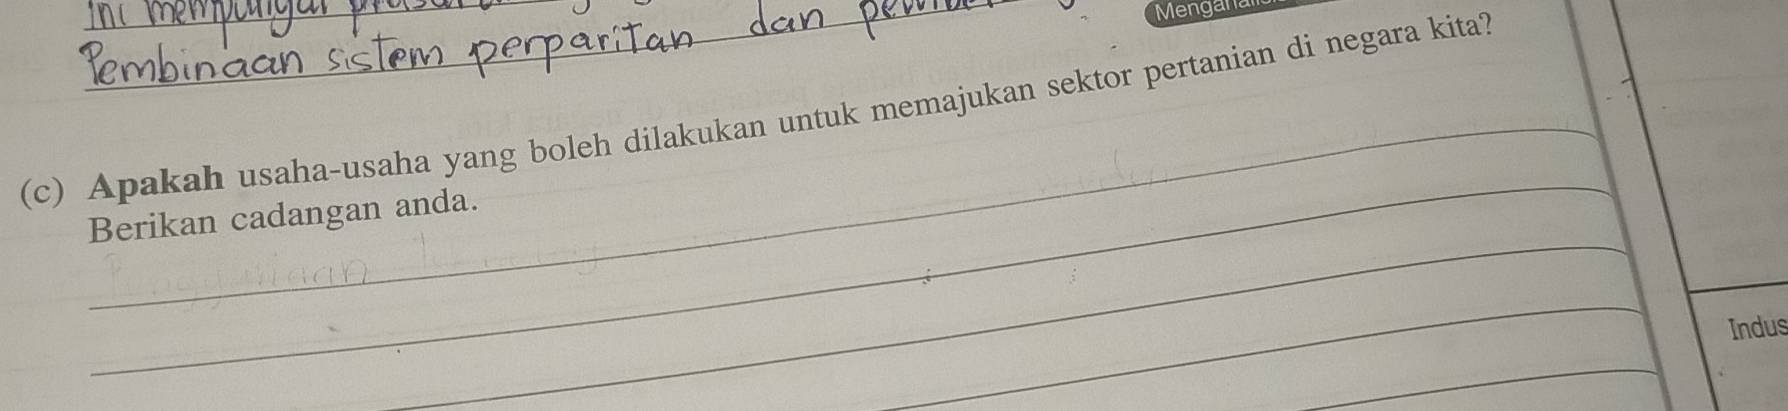 ini mempunyai
Pembinaan sistem perparitan dan
(c) Apakah usaha-usaha yang boleh dilakukan untuk memajukan sektor pertanian di negara kita?
Berikan cadangan anda.
Indus